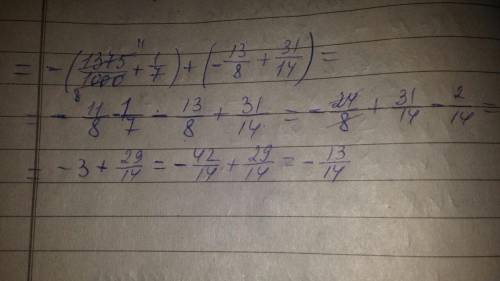 = -(1375/1000 + 1/7) + (-13/8 + 31/14) =
= - 11/8 - 1/7 - 13/8 + 31/14 = - 24/8 + 31/14 - 2/14 =
= -3 + 29/14 = - 42/14 + 29/14 = - 13/14